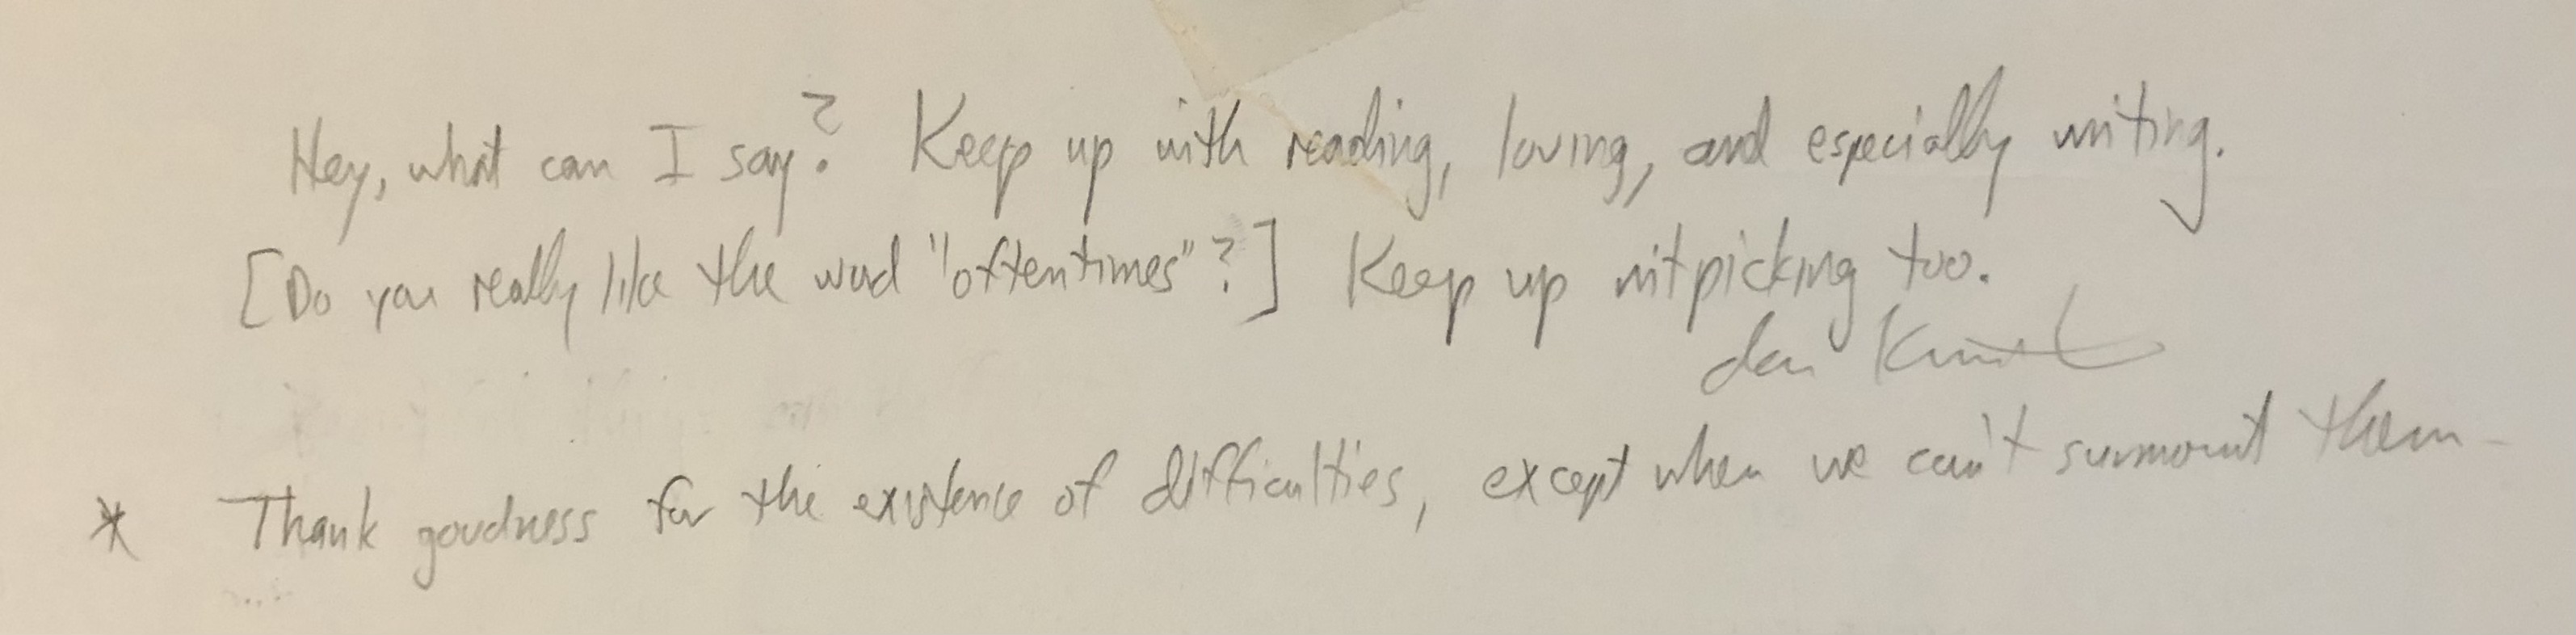 Hey, what can I say? Keep up with reading, loving, and especially writing.
[Do you really like the word "oftentimes"?] Keep up nitpicking too.
don Knuth
* Thank goodness for the existence of difficulties, except when we can't surmount them—